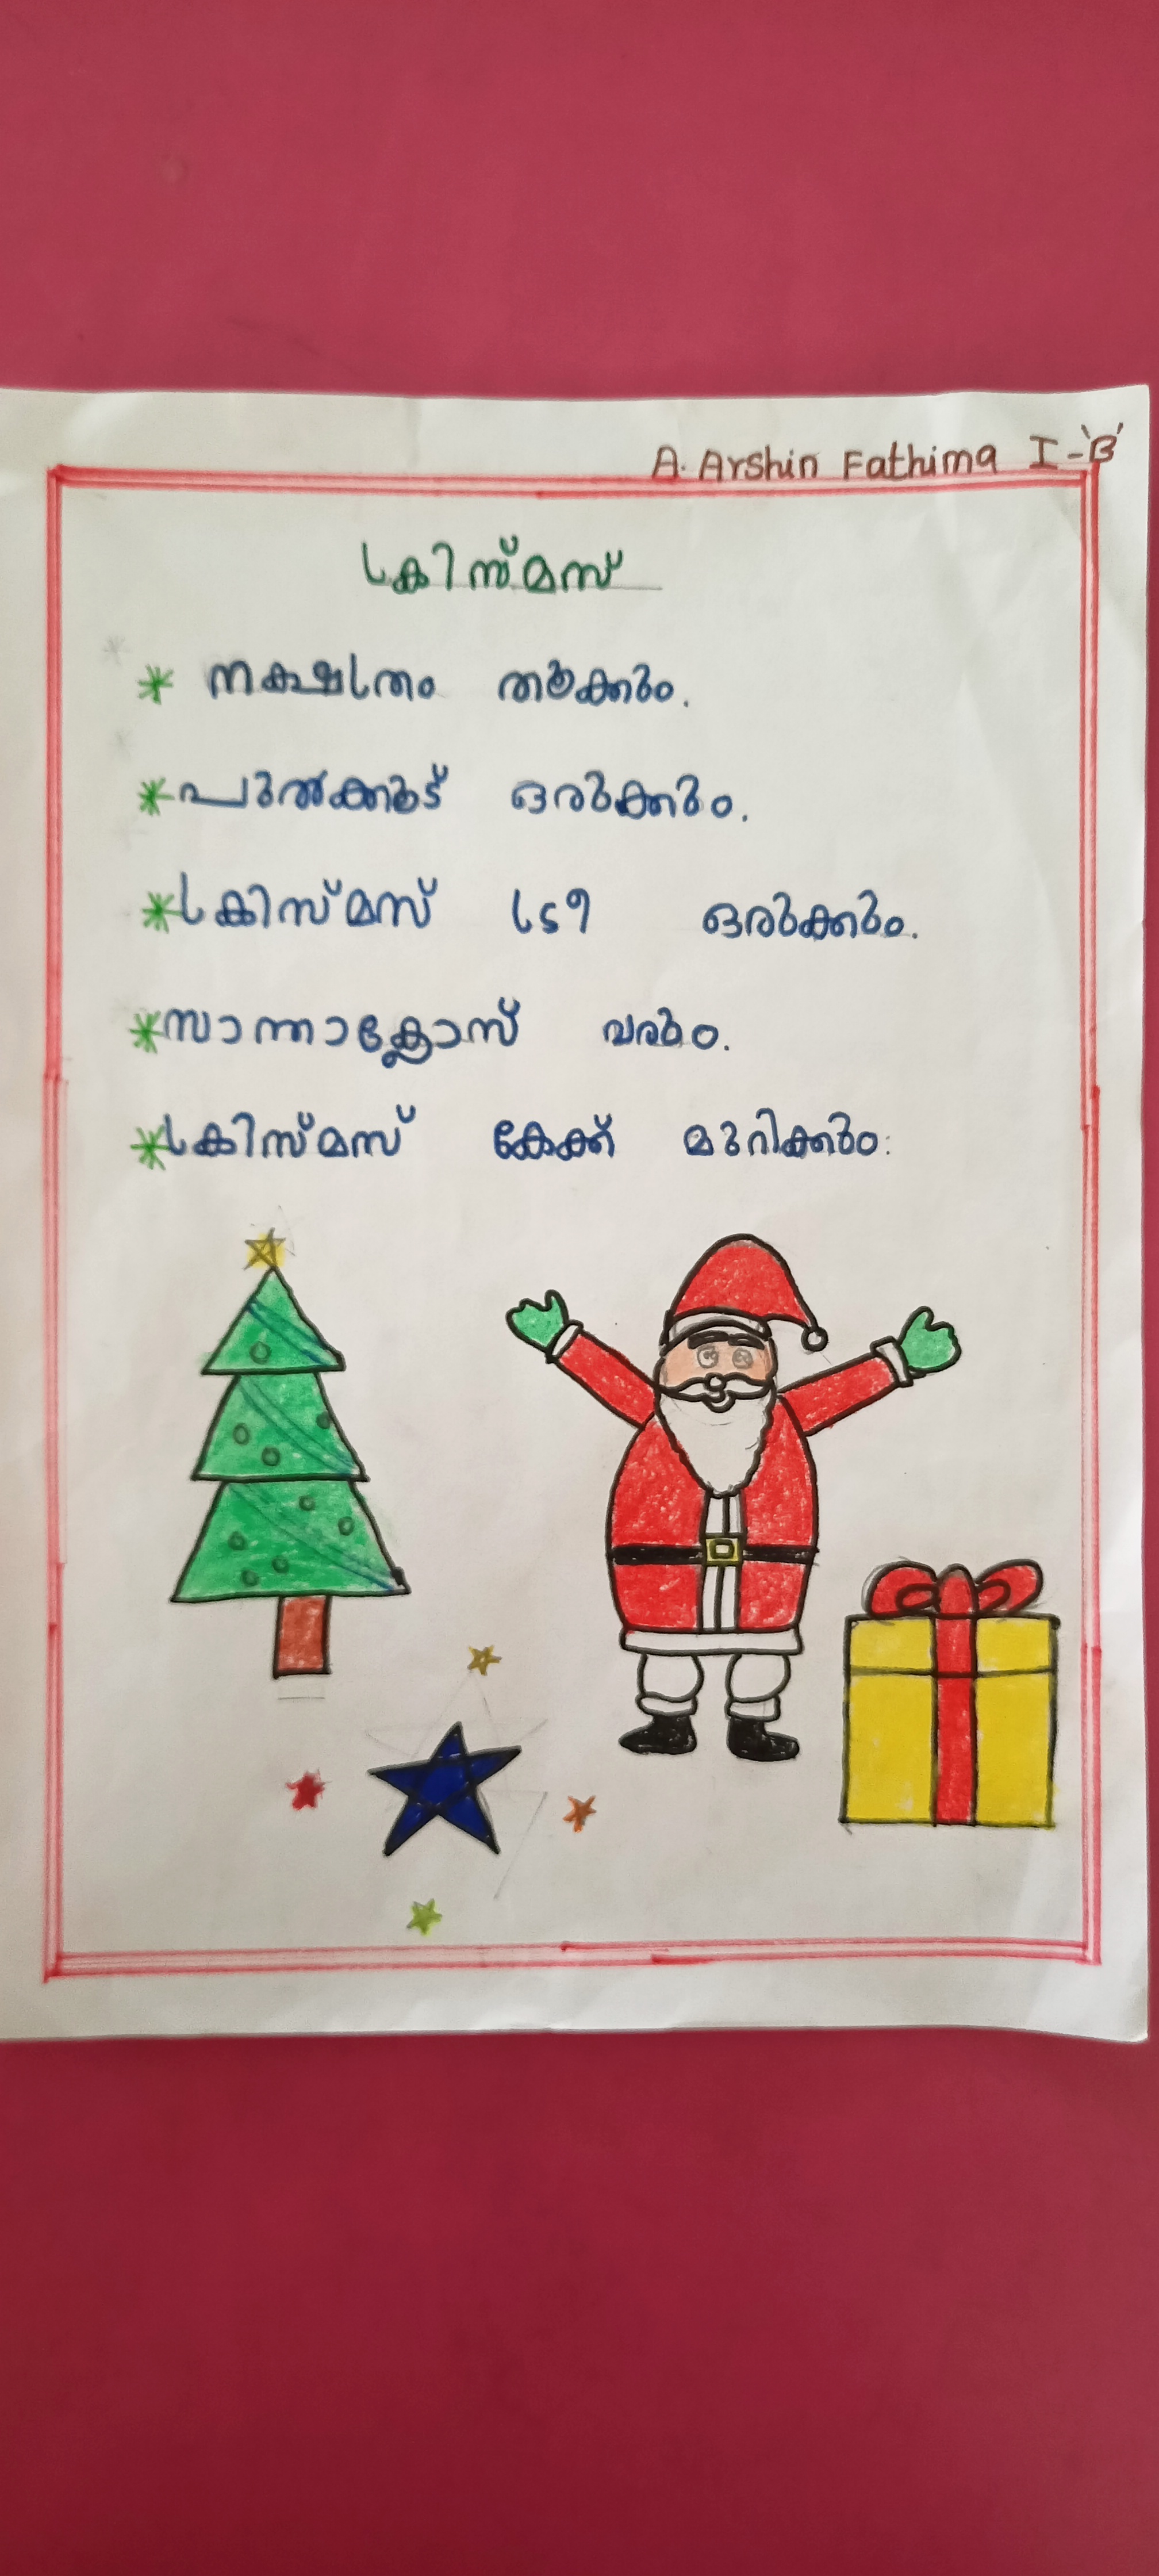 A. Arshin Fathima I-'B'
ക്രിസ്മസ്
* നക്ഷത്രം തൂക്കും.
* പുൽക്കൂട് ഒരുക്കും.
* ക്രിസ്മസ് ട്രീ ഒരുക്കും.
* സാന്താക്ലോസ് വരും.
* ക്രിസ്മസ് കേക്ക് മുറിക്കും.